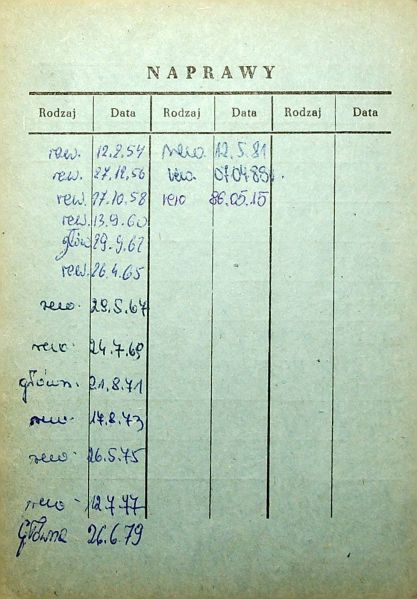 NAPRAWY
Rodzaj Data Rodzaj Data Rodzaj Data
rew. 12.2.54 rewo. 12.5.81
rew. 27.12.56
rew. 27.10.58 rewo 86.05.15
rew. 13.9.60
główn 29.9.62
rew. 26.4.65
rewo. 29.5.67
rewo. 24.7.69
główn. 21.8.71
rewo. 17.8.73
rewo. 26.5.75
rewo. 12.7.77
Główna 26.6.79